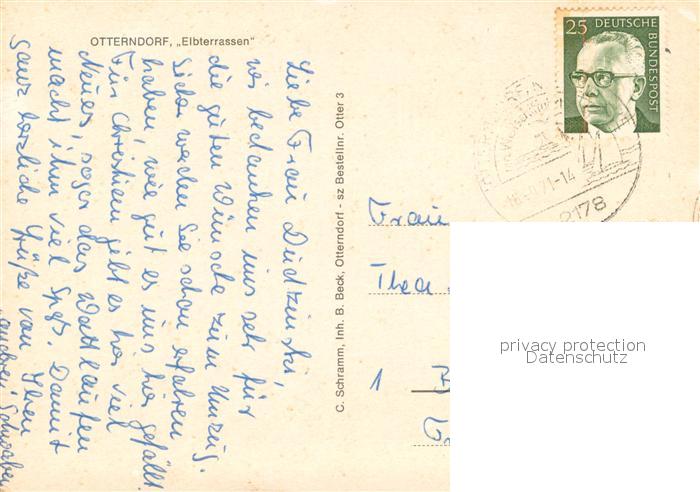 OTTERNDORF, „Elbterrassen"
Liebe Frau Dudzinski,
wir bedanken uns sehr für
die guten Wünsche zum Umzug.
Sicher werden Sie schon erfahren
haben, wie gut es uns hier gefällt.
Für Christian gibt es hier viel
Neues, sogar das Wattlaufen
macht ihm viel Spaß. Damit
ganz herzliche Grüße von Ihren
C. Schramm, Inh. B. Beck, Otterndorf - sz Bestellnr. Otter 3
25 DEUTSCHE
BUNDESPOST
71-14
2178
Frau
Thea
1
privacy protection
Datenschutz